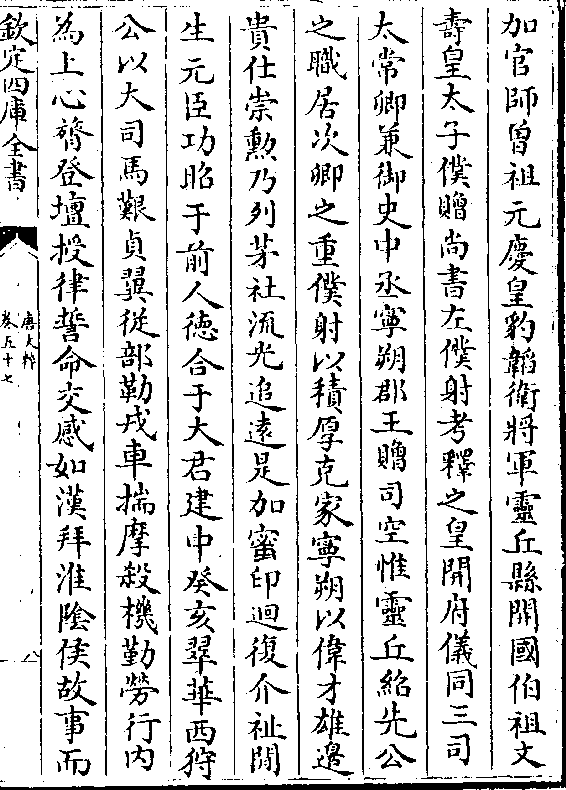 加官師曽祖元慶皇豹韜衛將軍靈丘縣開國伯祖文
壽皇太子僕贈尚書左僕射考釋之皇開府儀同三司
太常卿兼御史中丞寧朔郡王贈司空惟靈丘紹先公
之職居次卿之重僕射以積厚克家寧朔以偉才雄邊
貴仕崇勲乃列茅社流光追逺是加蜜印迴復介祉閒
生元臣功昭于前人徳合于大君建中癸亥翠華西狩
公以大司馬艱貞翼從部勒戎車揣摩殺機勤勞行内
為上心膂登壇授律誓命交感如漢拜淮隂侯故事而
欽定四庫全書
唐文粹
卷五十七
八